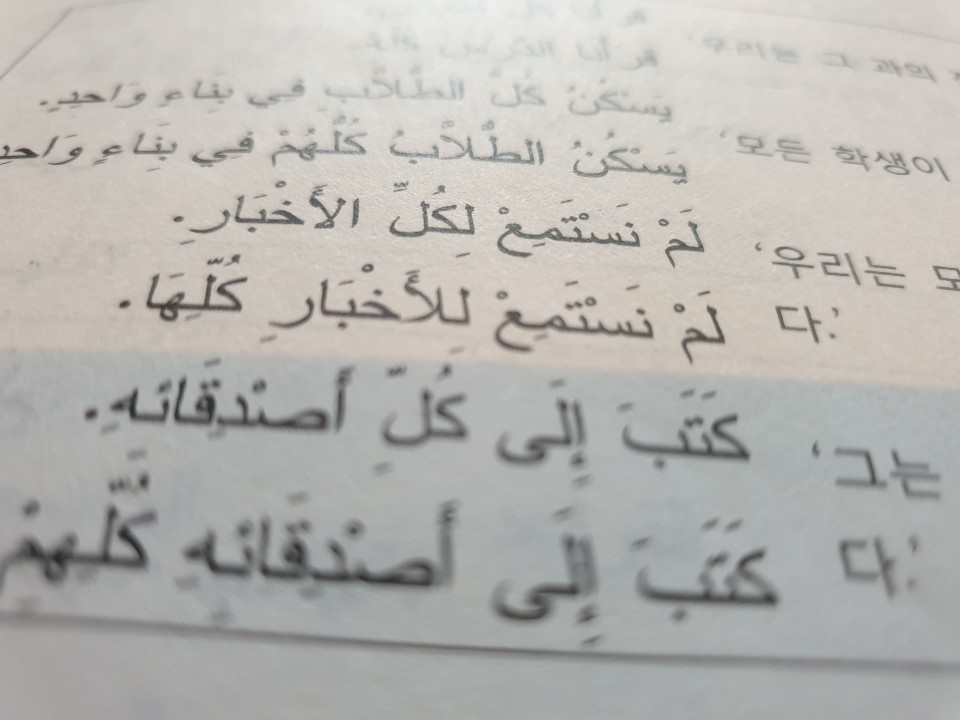 قرأنا الدرس كله. '우리는 그 과의
يَسْكُنُ كُلُّ الطُّلَّابِ فِي بِنَاءٍ وَاحِدٍ.
يَسْكُنُ الطُّلَّابُ كُلُّهُمْ فِي بِنَاءٍ وَاحِدٍ '모든 학생이
لَمْ نَسْتَمِعْ لِكُلِّ الأَخْبَارِ. '우리는 모
لَمْ نَسْتَمِعْ لِلأَخْبَارِ كُلِّهَا. 다.'
كَتَبَ إِلَى كُلِّ أَصْدِقَائِهِ. '그는
كَتَبَ إِلَى أَصْدِقَائِهِ كُلِّهِمْ 다.'